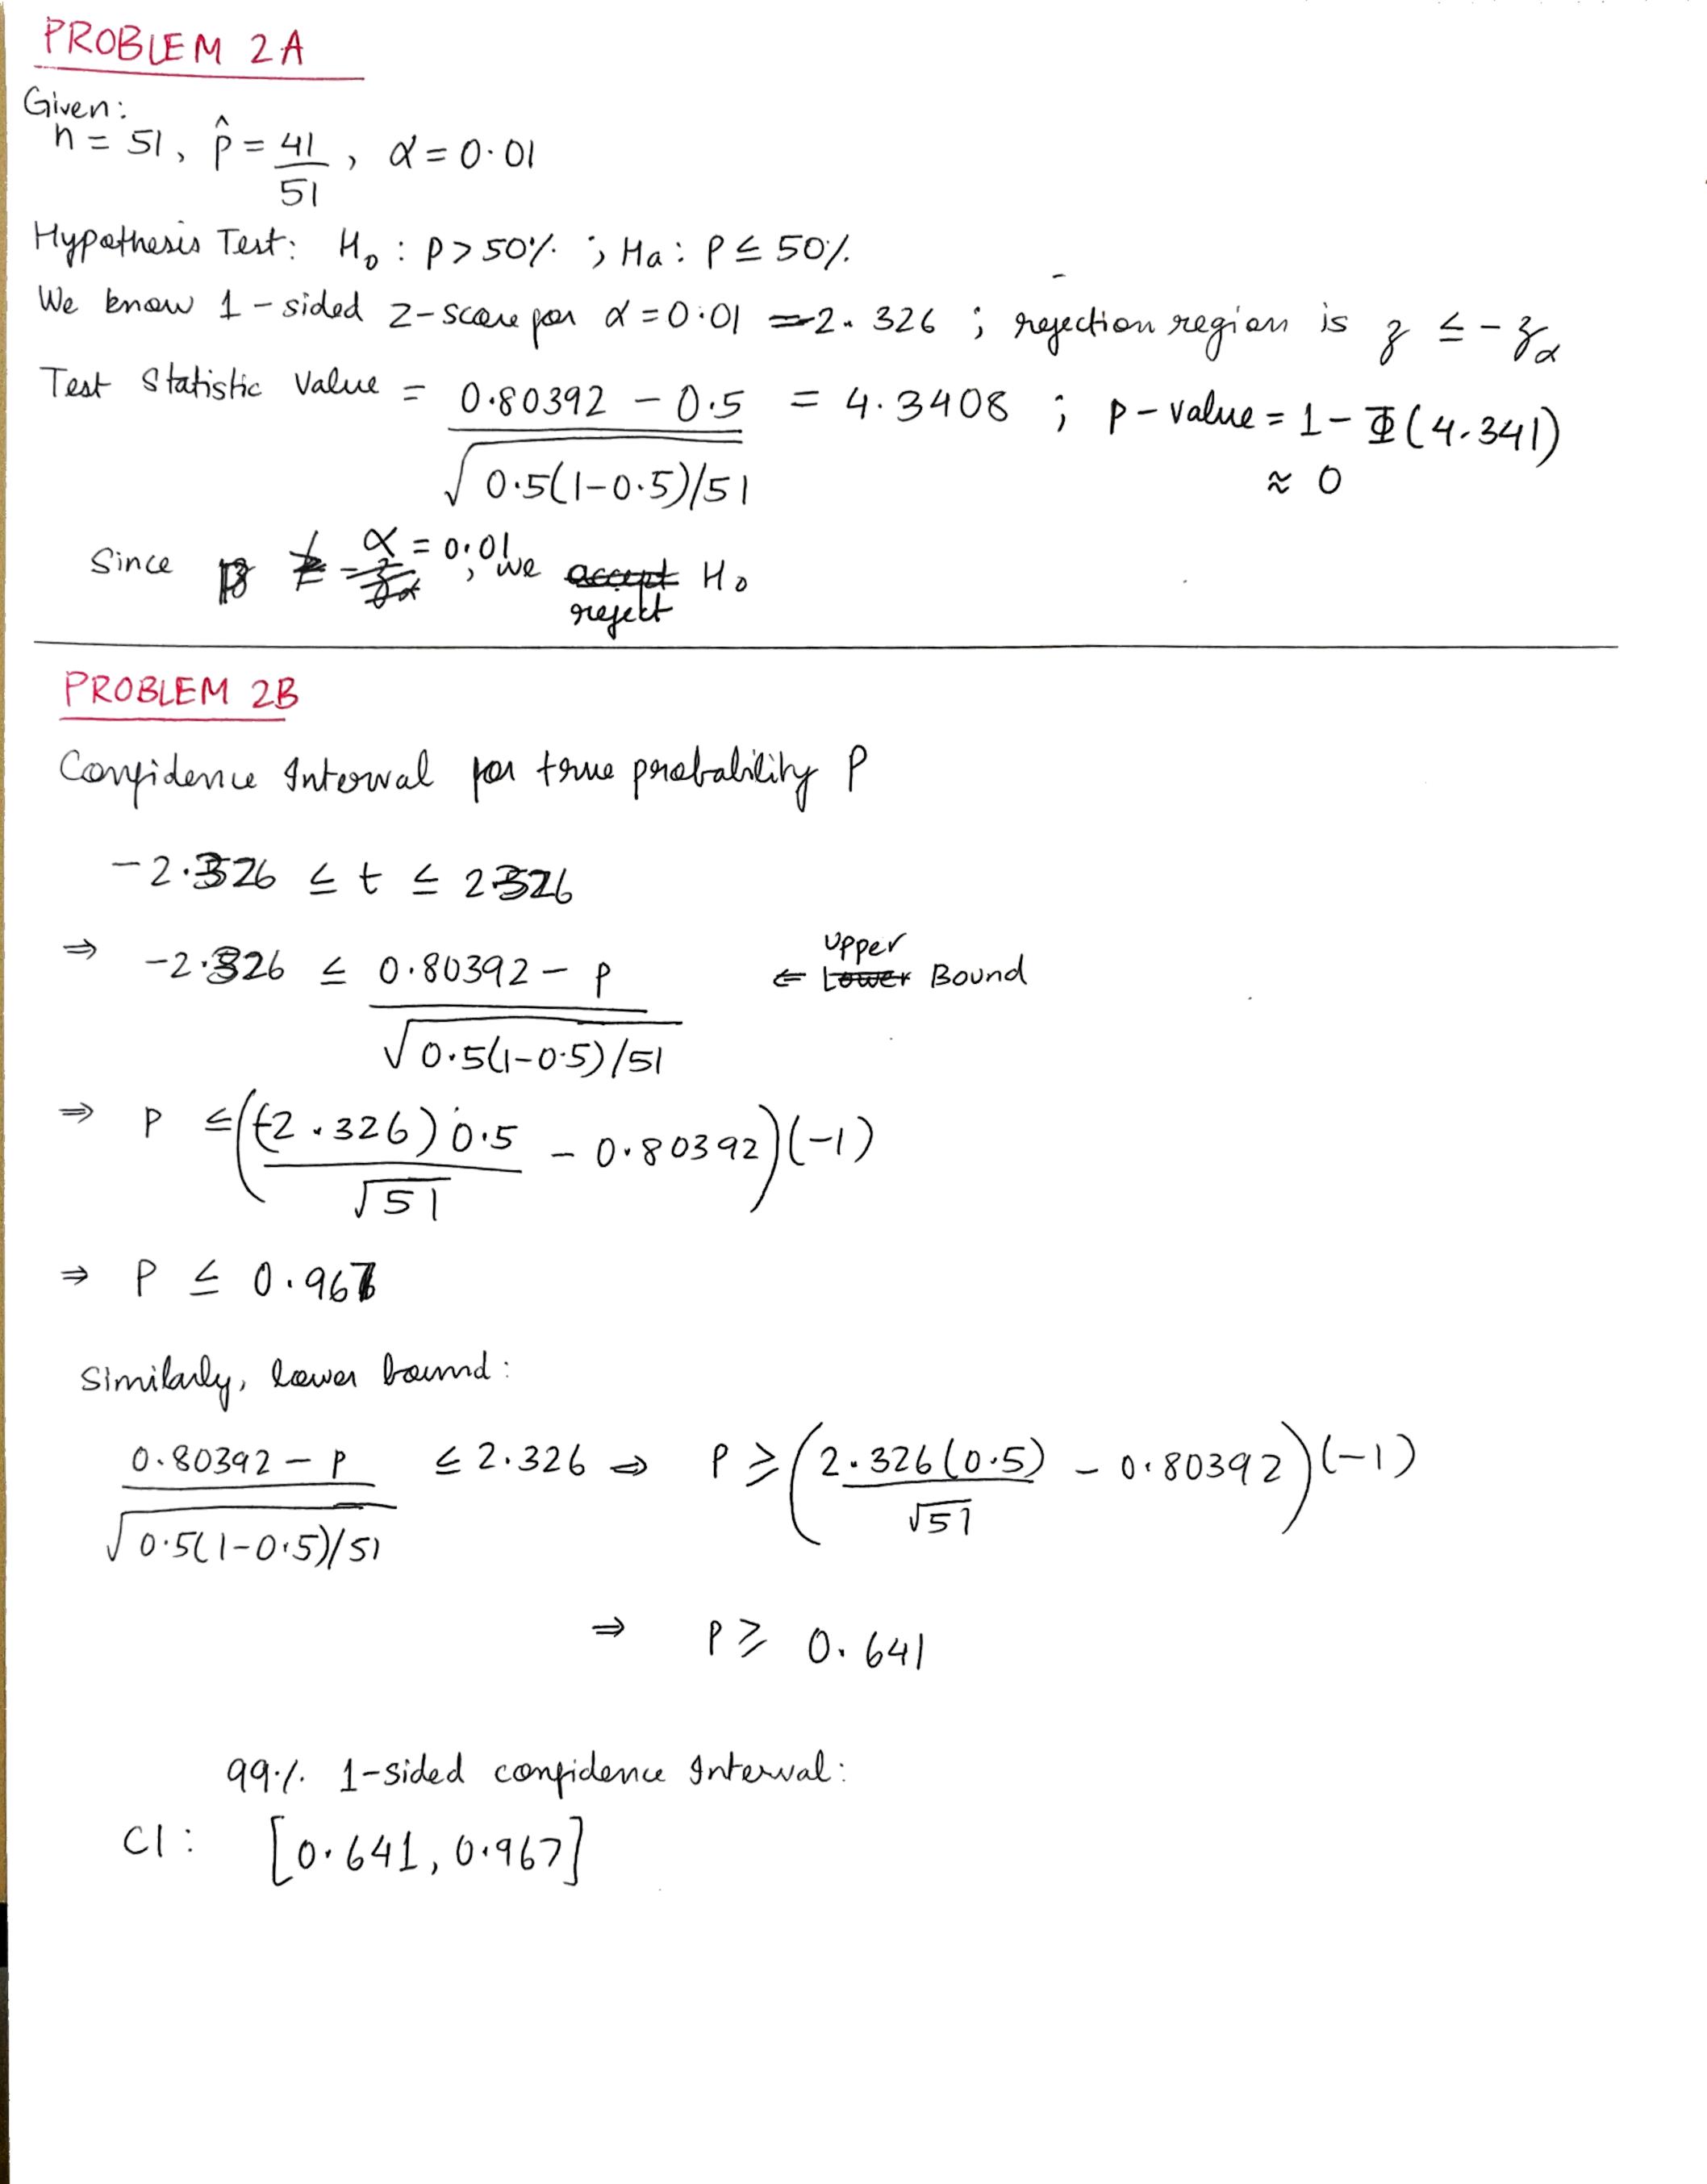 PROBLEM 2A
Given:
n = 51, p̂ = 41/51, α = 0.01
Hypothesis Test: H₀ : p > 50% ; Ha : p ≤ 50%
We know 1-sided z-score for α = 0.01 = -2.326 ; rejection region is z ≤ -zα
Test Statistic Value = (0.80392 - 0.5)/√(0.5(1-0.5)/51) = 4.3408 ; p-value = 1 - Φ(4.341)
≈ 0
Since α = 0.01, we accept H₀
reject
PROBLEM 2B
Confidence Interval for true probability P
-2.326 ≤ t ≤ 2.326
⇒ -2.326 ≤ (0.80392 - p)/√(0.5(1-0.5)/51) ⇐ Lower Upper Bound
⇒ P ≤ ((-2.326)0.5/√51 - 0.80392)(-1)
⇒ P ≤ 0.967
Similarly, lower bound:
(0.80392 - p)/√(0.5(1-0.5)/51) ≤ 2.326 ⇒ P ≥ (2.326(0.5)/√51 - 0.80392)(-1)
⇒ P ≥ 0.641
99% 1-sided confidence Interval:
CI: [0.641, 0.967]